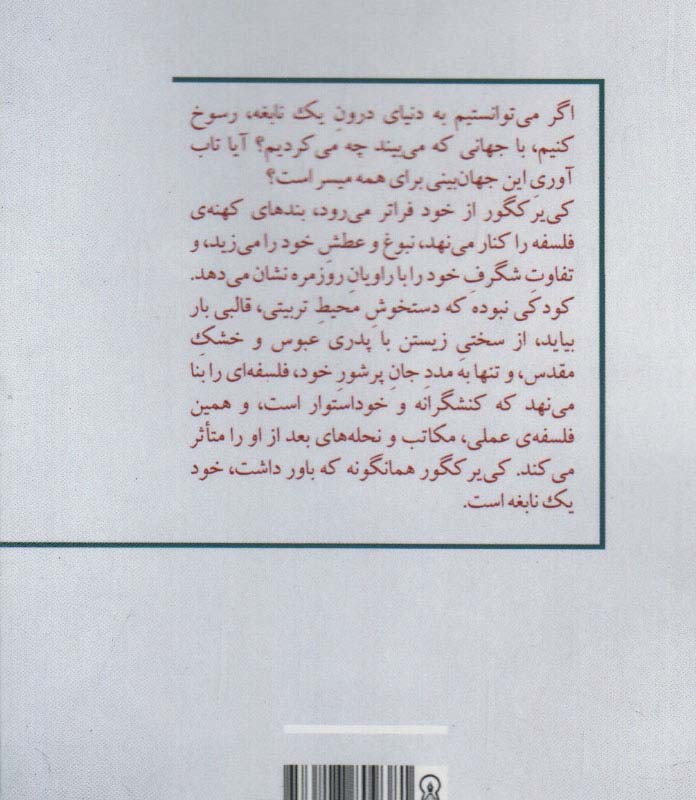 اگر می‌توانستیم به دنیای درونِ یک نابغه، رسوخ
کنیم، با جهانی که می‌بیند چه می‌کردیم؟ آیا تاب
آوریِ این جهان‌بینی برای همه میسر است؟
کی‌یرکگور از خود فراتر می‌رود، بندهای کهنه‌ی
فلسفه را کنار می‌نهد، نبوغ و عطشِ خود را می‌زید، و
تفاوتِ شگرفِ خود را با راویانِ روزمره نشان می‌دهد.
کودکی نبوده که دستخوشِ محیطِ تربیتی، قالبی بار
بیاید، از سختیِ زیستن با پدری عبوس و خشکِ
مقدس، و تنها به مددِ جانِ پرشورِ خود، فلسفه‌ای را بنا
می‌نهد که کنشگرانه و خوداستوار است، و همین
فلسفه‌ی عملی، مکاتب و نحله‌های بعد از او را متأثر
می‌کند. کی‌یرکگور همانگونه که باور داشت، خود
یک نابغه است.